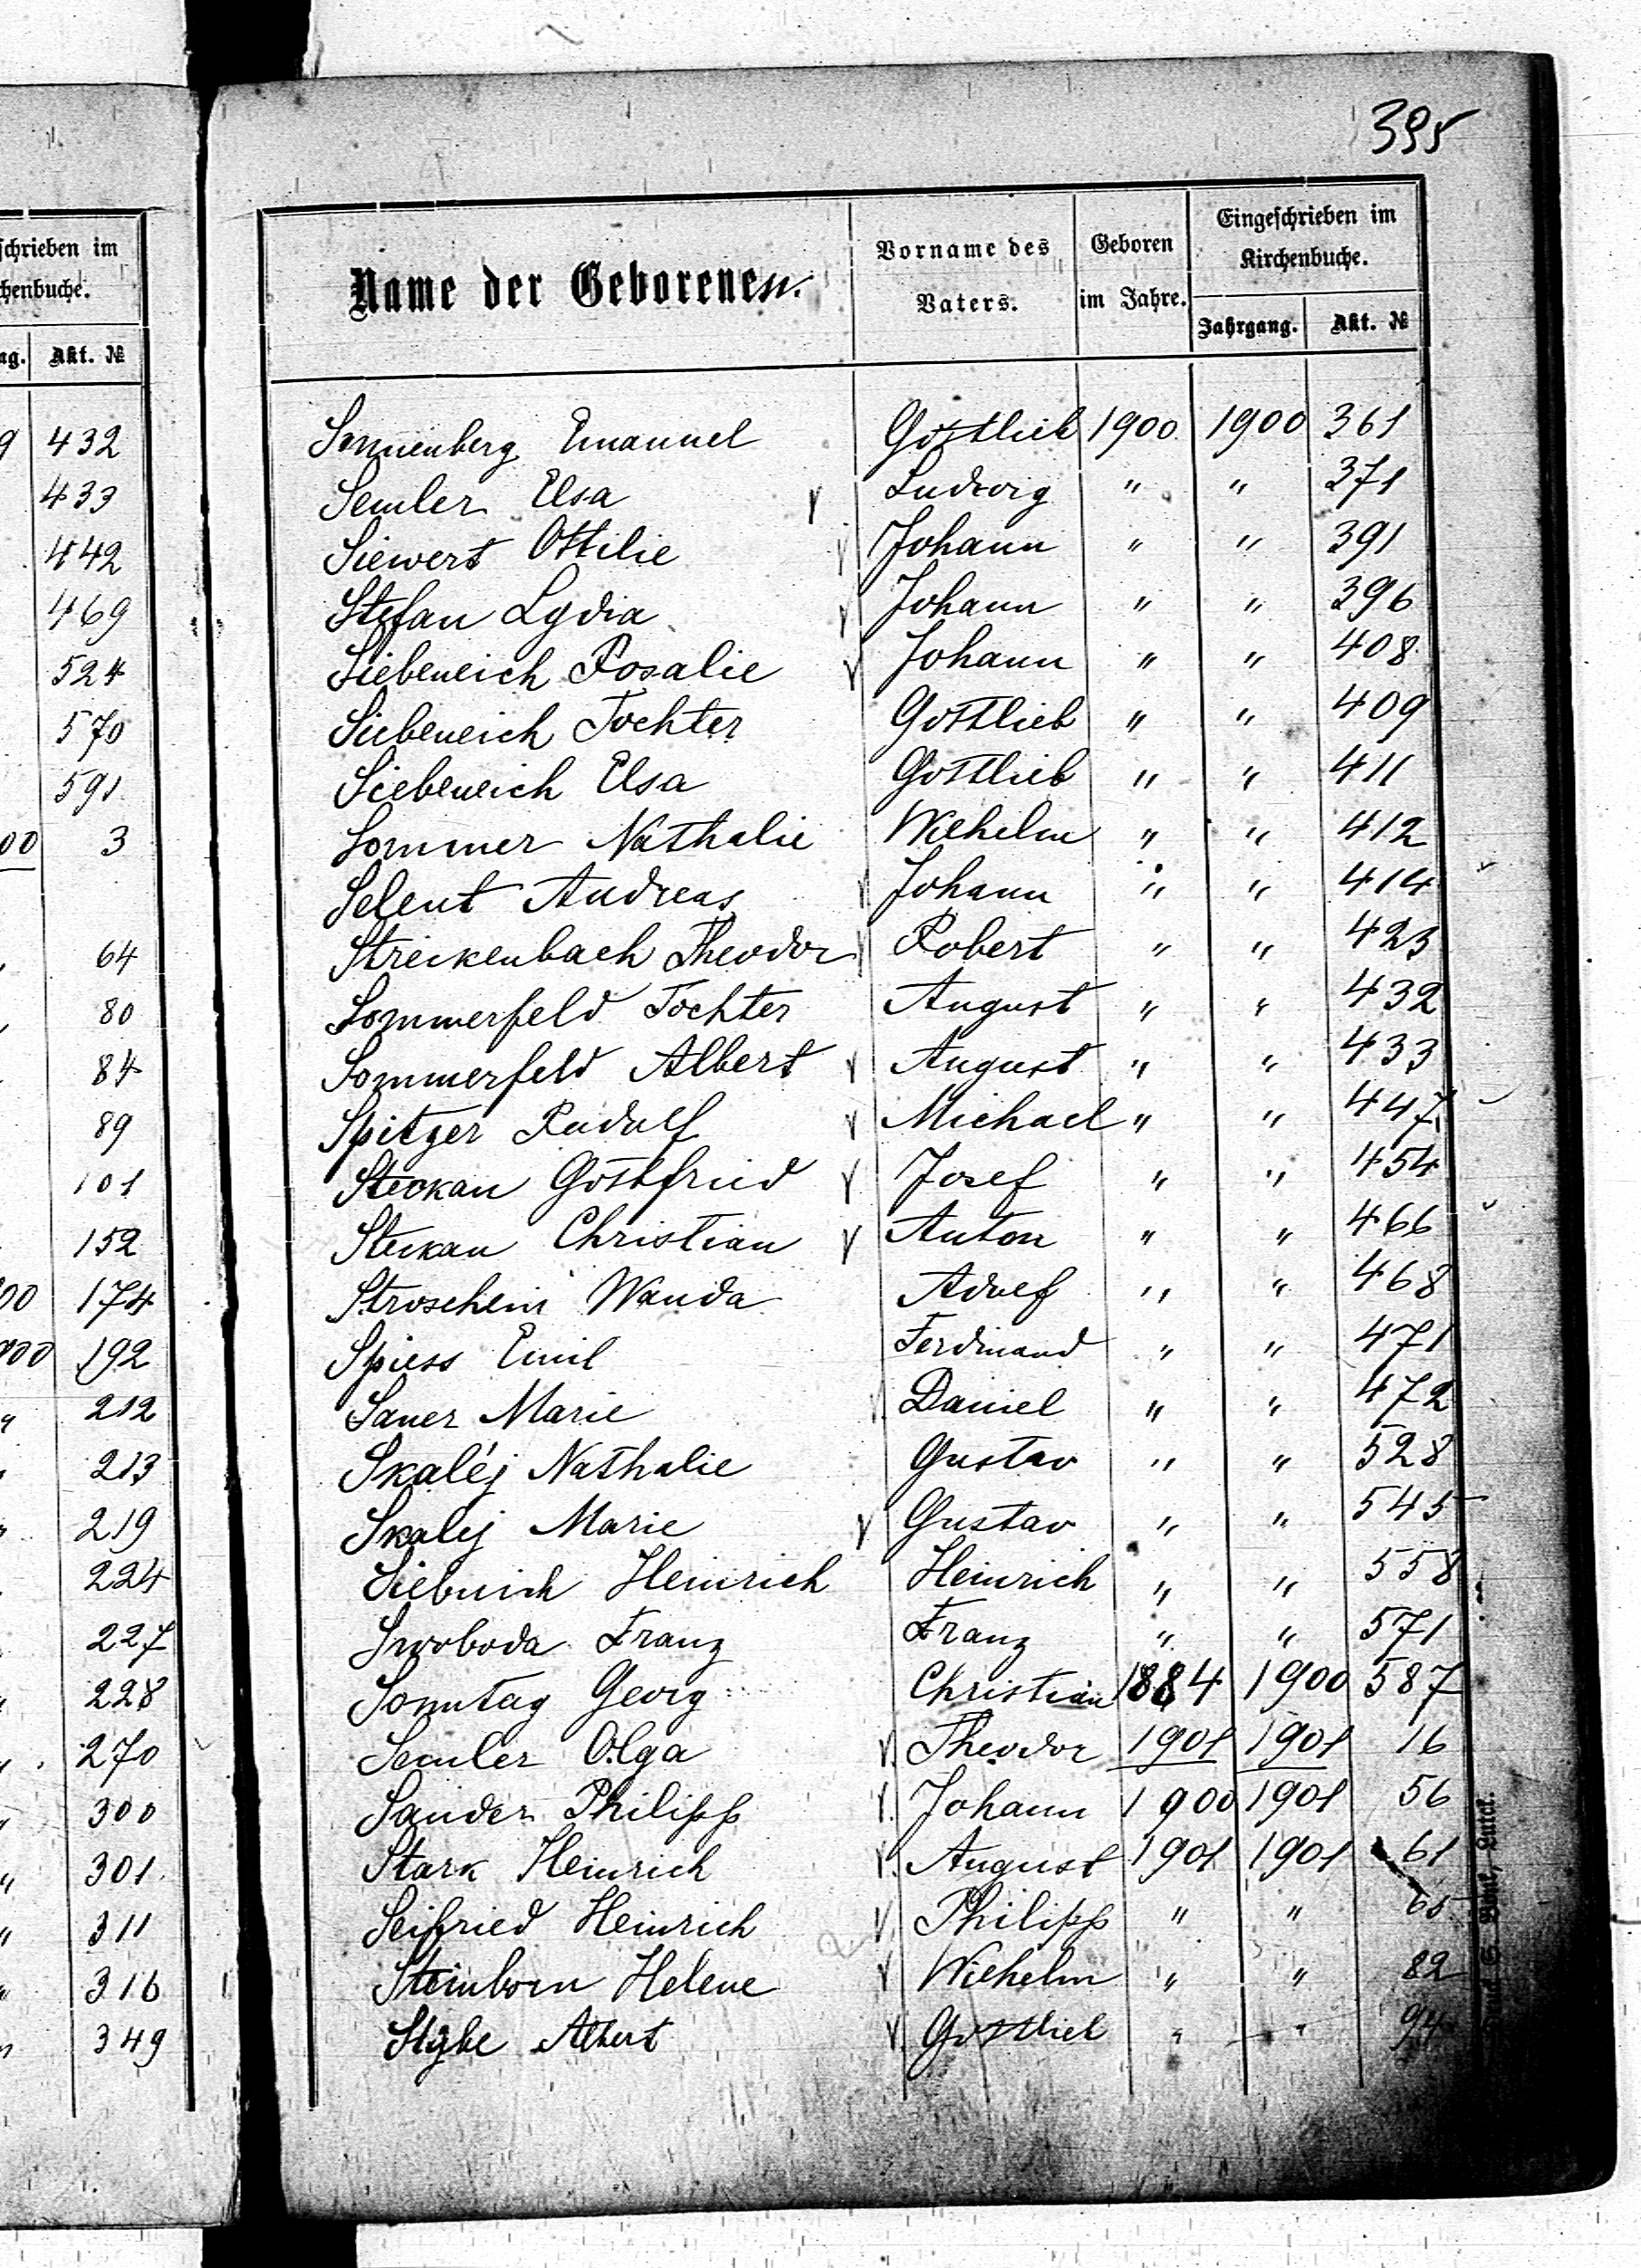 395
schrieben im
chenbuche.
ag. Akt. №
9 432
433
442
469
524
570
591
00 3
64
80
84
89
101
152
00 174
900 192
" 212
" 213
" 219
224
227
" 228
" 270
" 300
" 301
" 311
" 316
" 349
Name der Geborenen.
Vorname des Vaters.
Geboren im Jahre.
Eingeschrieben im Kirchenbuche.
Jahrgang. Akt. №
Sonnenberg Emanuel Gottlieb 1900 1900 361
Semler Elsa Ludwig " " 371
Siewert Ottilie Johann " " 391
Stefan Lydia Johann " " 396
Siebeneich Rosalie Johann " " 408
Siebeneich Tochter Gottlieb " " 409
Siebeneich Elsa Gottlieb " " 411
Sommer Nathalie Wilhelm " " 412
Selent Andreas Johann " " 414
Streckenbach Theodor Robert " " 423
Sommerfeld Tochter August " " 432
Sommerfeld Albert August " " 433
Spitzer Rudolf Michael " " 447
Steckan Gottfried Josef " " 454
Steckan Christian Anton " " 466
Stroschein Wanda Adolf " " 468
Spiess Emil Ferdinand " " 471
Sauer Marie Daniel " " 472
Skaléj Nathalie Gustav " " 528
Skalej Marie Gustav " " 545
Siebnich Heinrich Heinrich " " 558
Swoboda Franz Franz " " 571
Sonntag Georg Christian 1884 1900 587
Semler Olga Theodor 1901 1901 16
Sander Philipp Johann 1900 1901 56
Stark Heinrich August 1901 1901 61
Seifried Heinrich Philipp " " 65
Steinborn Helene Wilhelm " " 82
Stybe Albert Gottlieb " " 94